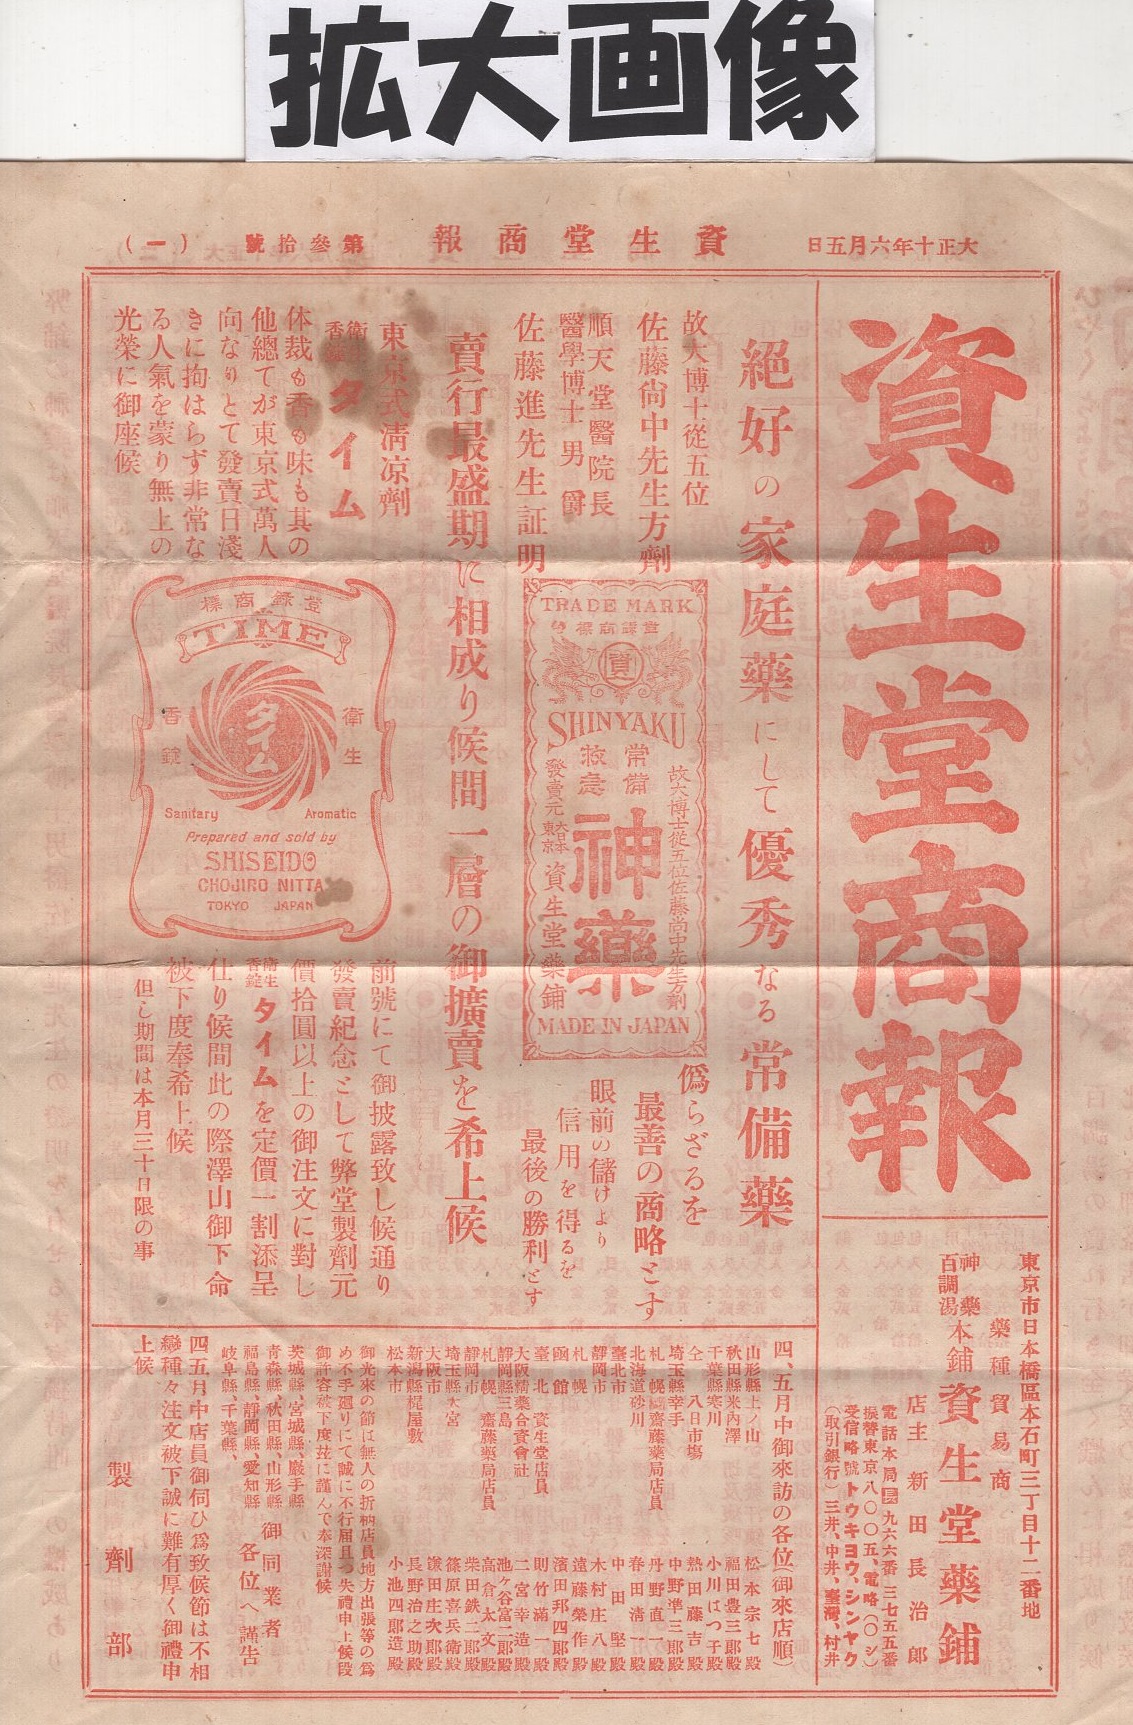 拡大画像
大正十年六月五日
資生堂商報
第參拾號
（一）
資生堂商報
東京市日本橋區本石町三丁目十二番地
藥種貿易商
神藥
百調湯
本舖
資生堂藥鋪
店主 新田長治郎
電話本局九六六番 三七五五番
振替東京八〇〇五、電略（〇シ）
受信略號トウキヨウ、シンヤク
（取引銀行）三井、中井、臺灣、村井
絕好の家庭藥にして優秀なる常備藥
故大博士從五位
佐藤尙中先生方劑
順天堂醫院長
醫學博士男爵
佐藤進先生証明
TRADE MARK
登錄商標
SHINYAKU
常備
救急
故大博士從五位佐藤尚中先生方劑
神藥
發賣元
大日本
東京
資生堂藥鋪
MADE IN JAPAN
僞らざるを
最善の商略とす
眼前の儲けより
信用を得るを
最後の勝利とす
賣行最盛期に相成り候間一層の御擴賣を希上候
東京式淸凉劑
衛生
香錠
タイム
体裁も香も味も其の
他總てが東京式萬人
向なりとて發賣日淺
きに拘はらず非常な
る人氣を蒙り無上の
光榮に御座候
登錄商標
TIME
衛生
タイム
香錠
Sanitary Aromatic
Prepared and sold by
SHISEIDO
CHOJIRO NITTA
TOKYO JAPAN
前號にて御披露致し候通り
發賣紀念として弊堂製劑元
價拾圓以上の御注文に對し
衛生
香錠
タイムを定價一割添呈
仕り候間此の際澤山御下命
被下度奉希上候
但し期間は本月三十日限の事
四、五月中御來訪の各位（御來店順）
山形縣上ノ山 松本宗七殿
秋田縣米內澤 福田豊三郞殿
千葉縣寒川 小川はつ子殿
仝 八日市場 熱田藤吉殿
埼玉縣幸手 中野準三郞殿
札幌齋藤藥局店員 丹野直一殿
北海道砂川 春田淸一殿
臺北市 中田堅殿
靜岡市 木村庄八殿
札幌 遠藤榮作殿
函館 濱田邦四郞殿
臺北資生堂店員 則竹滿一殿
大阪精藥合資會社 二宮幸造殿
靜岡縣三島 池ヶ谷富二郞殿
札幌齋藤藥局店員 高倉太文殿
靜岡市 柴田鉄二郞殿
埼玉縣大宮 篠原喜兵衛殿
大阪市 謙田庄次郞殿
新潟縣梶屋敷 長野治之助殿
松本市 小池四郞造殿
御光來の節は無人の折柄店員地方出張等の爲
め不手廻りにて誠に不行届且つ失禮申上候段
御許容被下度玆に謹んで奉深謝候
茨城縣、宮城縣、巖手縣
靑森縣、秋田縣、山形縣
福島縣、靜岡縣、愛知縣
岐阜縣、千葉縣、
御同業者
各位へ謹告
四五月中店員御伺ひ爲致候節は不相
變種々注文被下誠に難有厚く御禮申
上候
製劑部